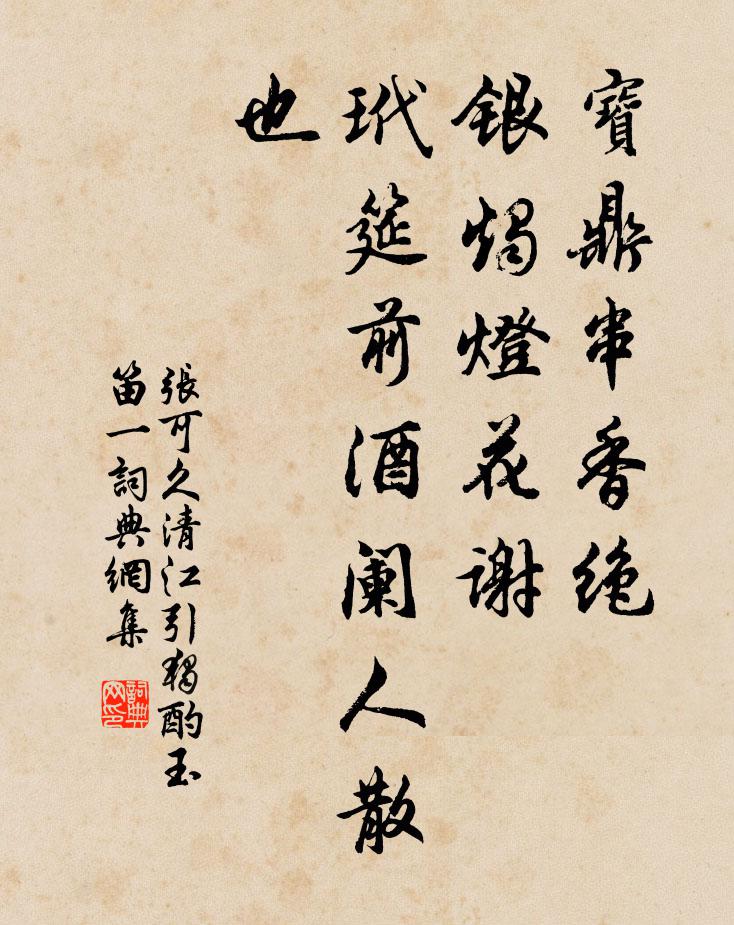 寶鼎串香绝
银燭燈花謝
玳筵前酒阑人散
也
張可久清江引獨酌玉
笛一詞典網集
詞典网印